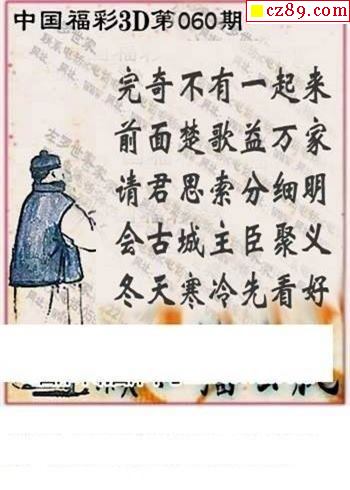 cz89.com
中国福彩3D第060期
完奇不有一起来
前面楚歌益万家
请君思索分细明
会古城主臣聚义
冬天寒冷先看好